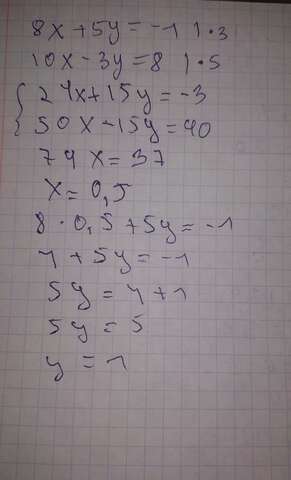 8x + 5y = -1 | · 3
10x - 3y = 8 | · 5
{ 24x + 15y = -3
50x - 15y = 40
74x = 37
x = 0,5
8 · 0,5 + 5y = -1
4 + 5y = -1
5y = 4 + 1
5y = 5
y = 1